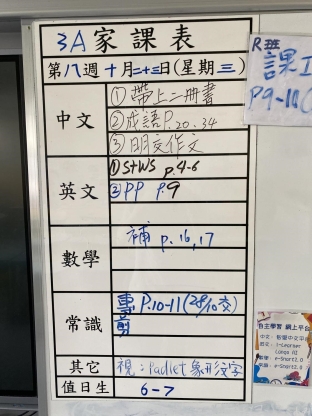 3A家課表
第八週十月二十三日(星期三)
中文
①帶上二冊書
②成語P.20.34
③明交作文
英文
①S+WS P.4-6
②PP P.9
數學
補 P.16,17
常識
專 P.10-11(28/10交)
剪
其它
視:Padlet象形文字
值日生
6-7
R班
課
P9-10
自主學習 網上平台